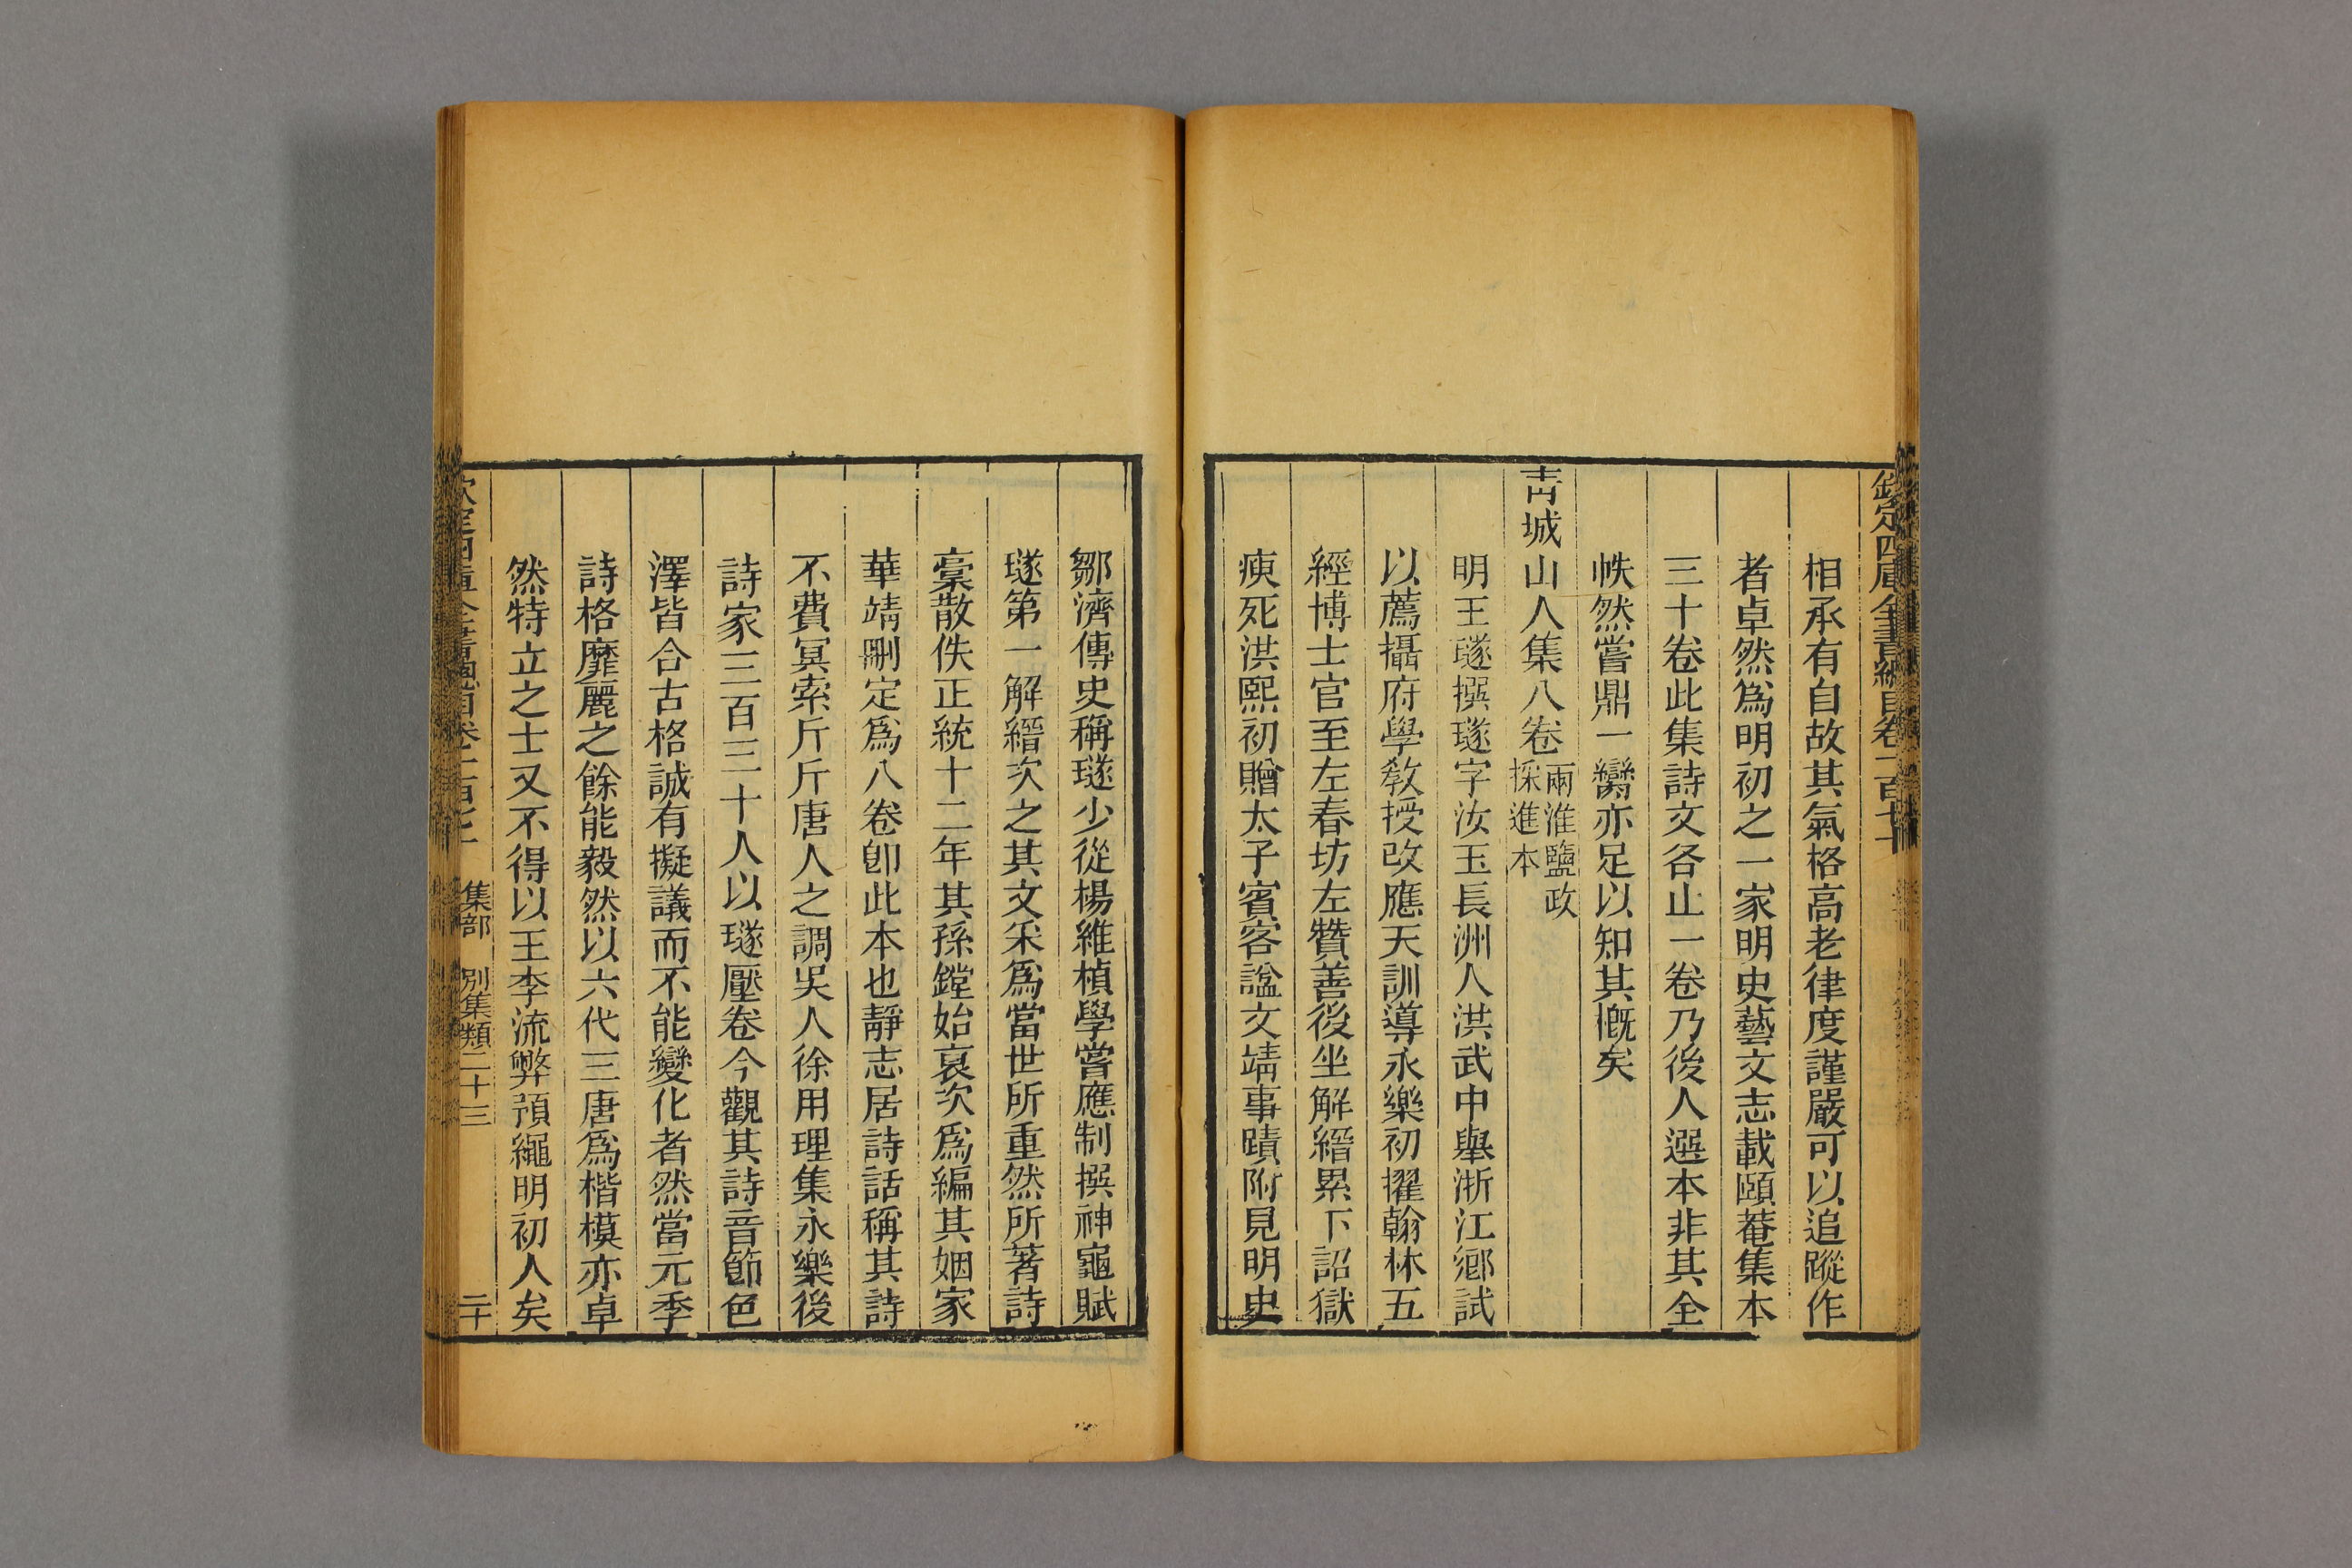 欽定四庫全書總目卷一百七十
相承有自故其氣格高老律度謹嚴可以追蹤作
者卓然爲明初之一家明史藝文志載頤菴集本
三十卷此集詩文各止一卷乃後人選本非其全
帙然嘗鼎一臠亦足以知其槪矣
青城山人集八卷
兩淮鹽政
採進本
明王璲撰璲字汝玉長洲人洪武中舉浙江鄉試
以薦攝府學敎授改應天訓導永樂初擢翰林五
經博士官至左春坊左贊善後坐解縉累下詔獄
瘐死洪熙初贈太子賓客諡文靖事蹟附見明史
鄒濟傳史稱璲少從楊維楨學嘗應制撰神龜賦
璲第一解縉次之其文采爲當世所重然所著詩
稾散佚正統十二年其孫鏜始裒次爲編其姻家
華靖刪定爲八卷卽此本也靜志居詩話稱其詩
不費冥索斤斤唐人之調吳人徐用理集永樂後
詩家三百三十人以璲壓卷今觀其詩音節色
澤皆合古格誠有擬議而不能變化者然當元季
詩格靡麗之餘能毅然以六代三唐爲楷模亦卓
然特立之士又不得以王李流弊預繩明初人矣
欽定四庫全書總目卷一百七十 集部 別集類二十三 二十